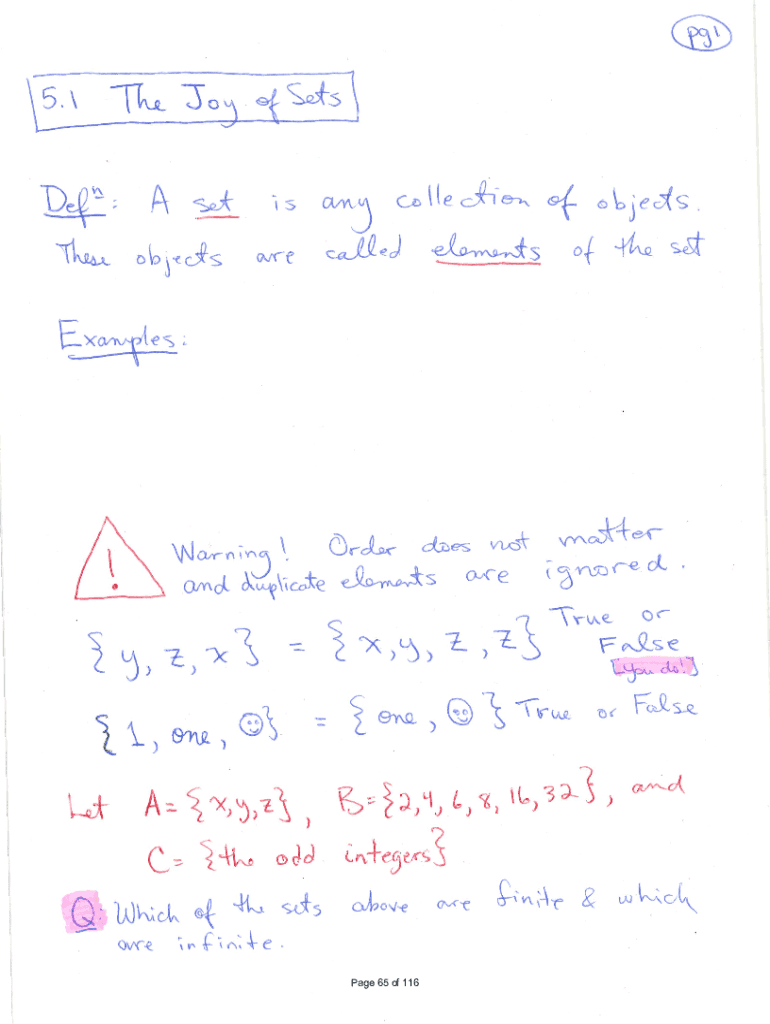 pg1
5.1 The Joy of Sets
Defⁿ: A set is any collection of objects.
These objects are called elements of the set
Examples:
! Warning! Order does not matter
and duplicate elements are ignored.
{y, z, x} = {x, y, z, z} True or
False
[you do!]
{1, one, ☺} = {one, ☺} True or False
Let A = {x, y, z}, B = {2, 4, 6, 8, 16, 32}, and
C = {the odd integers}
Q: Which of the sets above are finite & which
are infinite.
Page 65 of 116